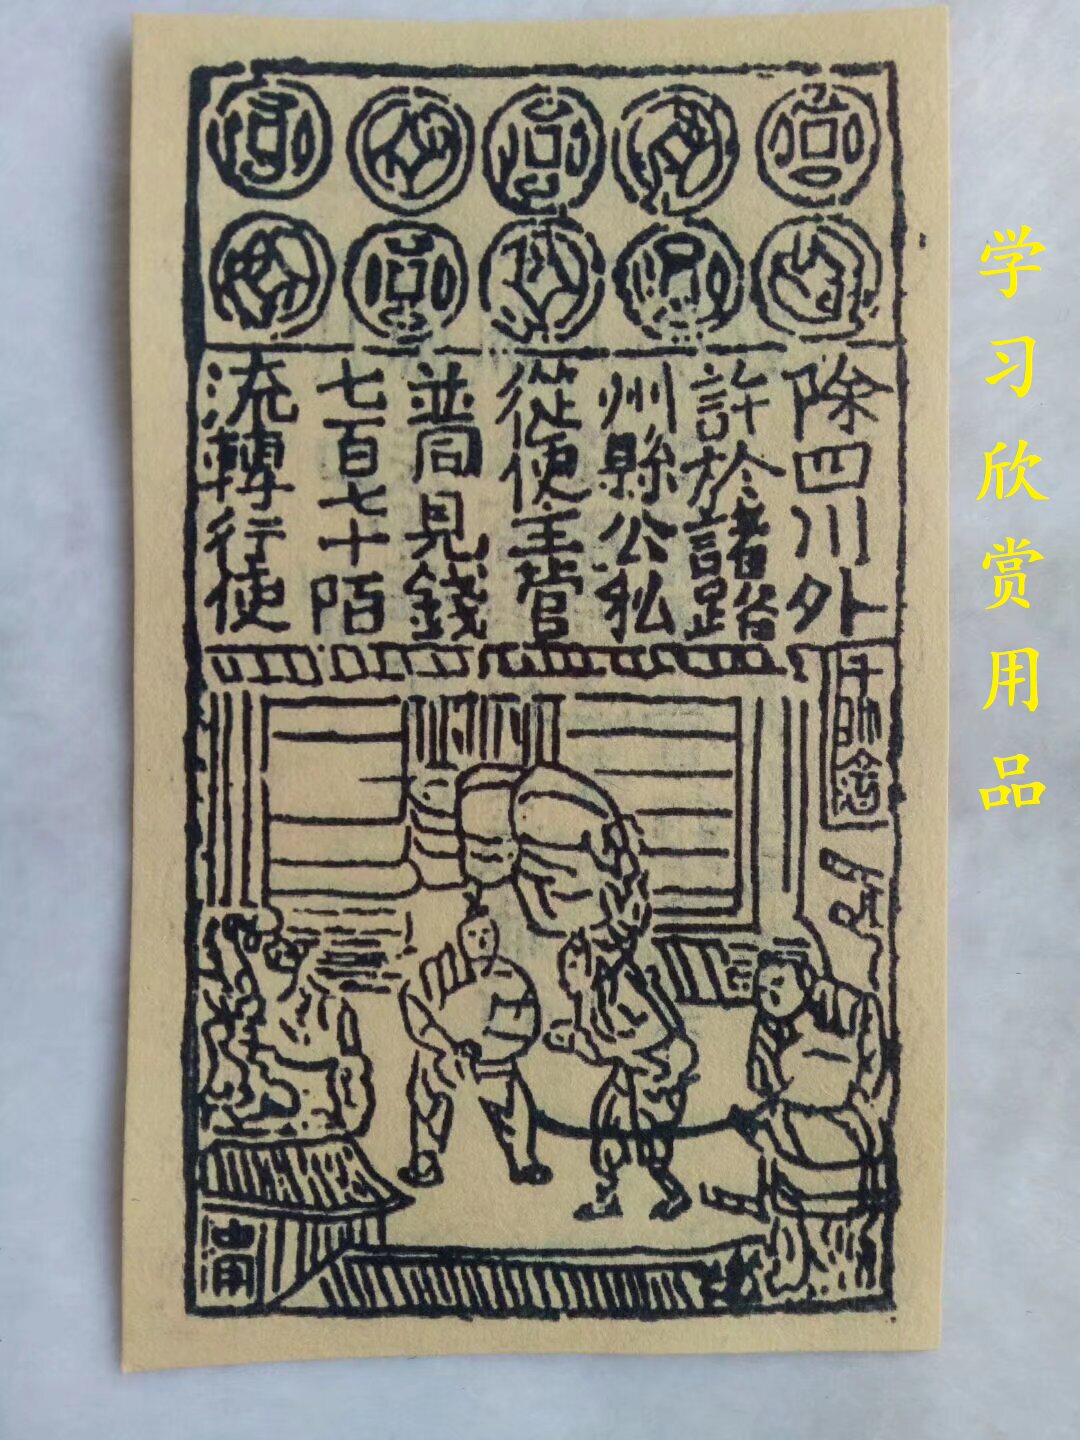 除四川外
許於諸路
州縣公私
從便主管
並同見錢
七百七十陌
流轉行使
学习欣赏用品